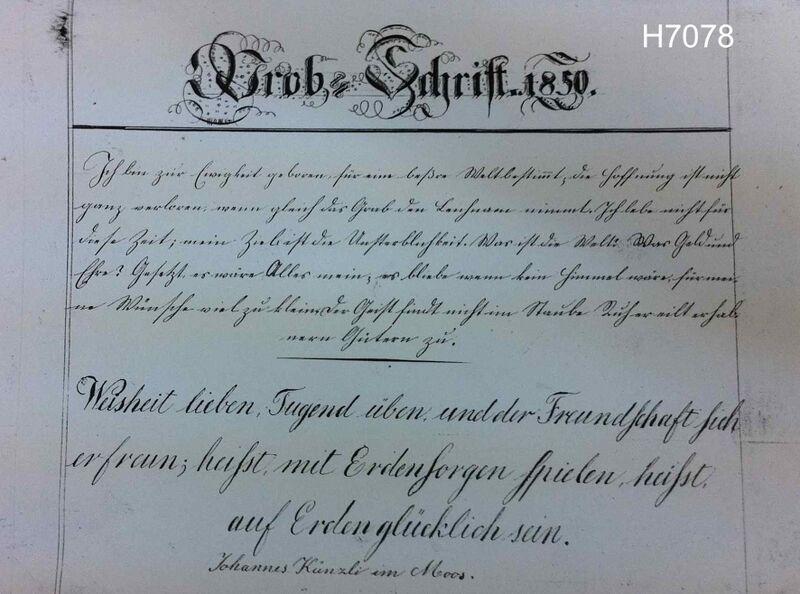 H7078
Prob-Schrift. 1850.
Ich bin zur Ewigkeit geboren, für eine beßre Welt bestimmt; die Hoffnung ist nicht
ganz verloren, wenn gleich das Grab den Leichnam nimmt. Ich lebe nicht für
diese Zeit; mein Ziel ist die Unsterblichkeit. Was ist die Welt? Was Geld und
Ehre? Gesetzt, es wäre Alles mein; es bliebe wenn kein Himmel wäre, für mei-
ne Wünsche viel zu klein. Der Geist findt nicht im Staube Ruh er eilt erhab-
nern Gütern zu.
Weisheit lieben, Tugend üben, und der Freundschaft sich
erfreun; heisst, mit Erdensorgen spielen, heisst,
auf Erden glücklich sein.
Johannes Künzli im Moos.